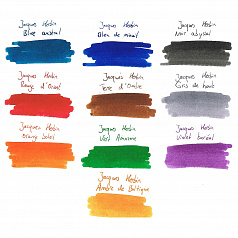 Jacques Herbin
Bleu austral
Jacques Herbin
Bleu de minuit
Jacques Herbin
Noir abyssal
Jacques Herbin
Rouge d'Orient
Jacques Herbin
Terre d'Ombre
Jacques Herbin
Gris de houle
Jacques Herbin
Orange soleil
Jacques Herbin
Vert Amazone
Jacques Herbin
Violet boréal
Jacques Herbin
Ambre de Baltique